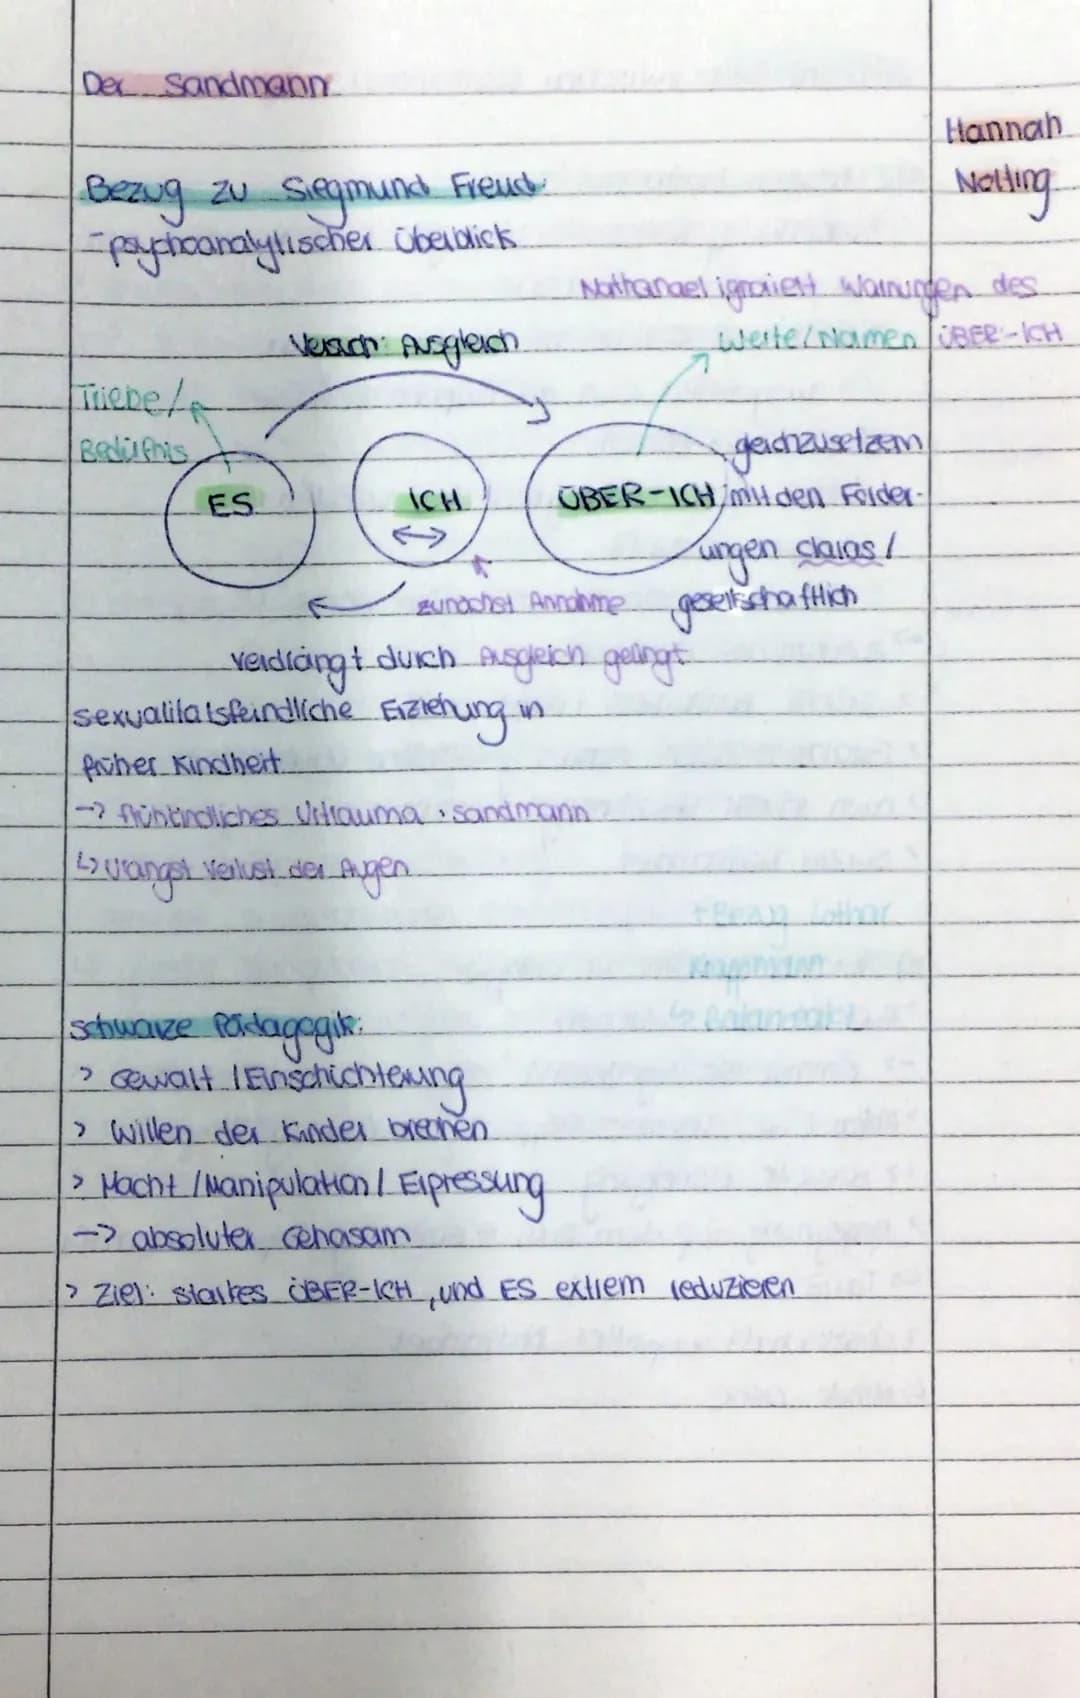 Der Sandmann
Hannah
Nolting
Bezug zu Siegmund Freud:
- psychoanalytischer Überblick
Nathanael ignoriert Warnungen des
ÜBER-ICH
Versuch: Ausgleich
Werte/Normen
Triebe/
Bedürfnis
ES
ICH
ÜBER-ICH
geichzusetzem
mit den Forder-
ungen claras /
gesellschaftlich
zunächst Annahme
verdrängt durch Ausgleich gelingt
sexualitätsfeindliche Erziehung in
früher Kindheit
-> frühkindliches Urtrauma: Sandmann
↳ Urangst Verlust der Augen
+ Bezug Lothar
Krappmann
↳ Balanceakt
schwarze Pädagogik:
> Gewalt / Einschichterung
> Willen der Kinder brechen
> Macht / Manipulation / Erpressung
-> absoluter Gehosam
> Ziel: starkes ÜBER-ICH, und ES extrem reduzieren